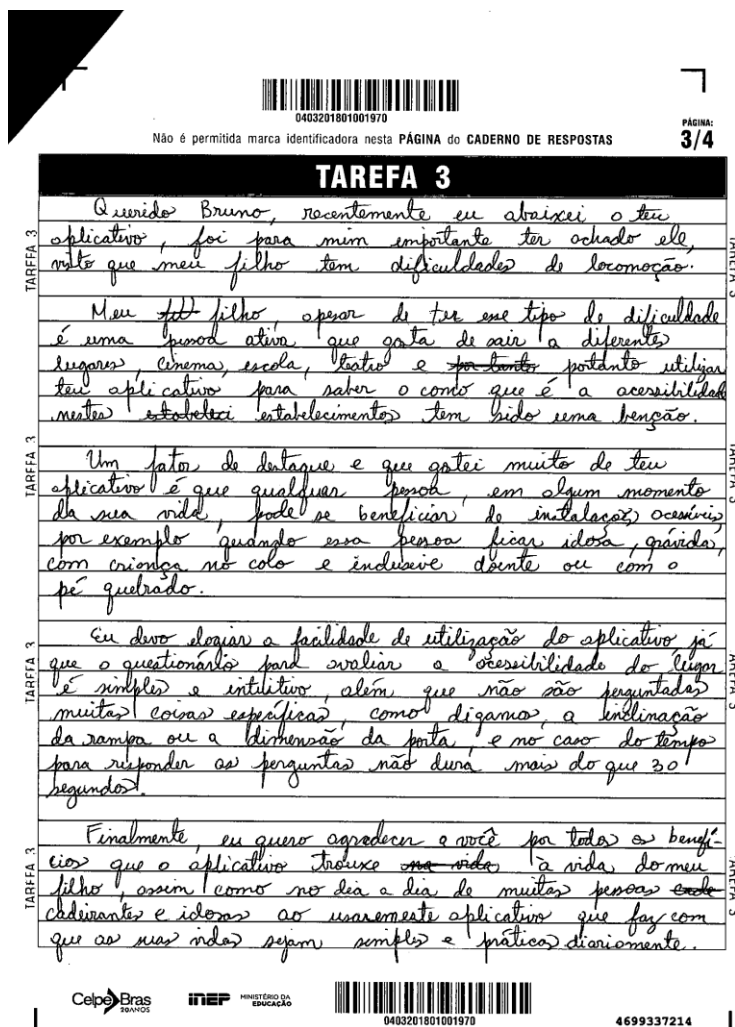 0403201801001970
Não é permitida marca identificadora nesta PÁGINA do CADERNO DE RESPOSTAS
PÁGINA:
3/4
TAREFA 3
Querido Bruno, recentemente eu abaixei o teu
aplicativo, foi para mim emportante ter achado ele,
visto que meu filho tem dificuldades de locomoção.
Meu filho, apesar de ter esse tipo de dificuldade
é uma pessoa ativa que gosta de sair a diferentes
lugares, cinema, escola, teatro e por tanto portanto utilizar
teu aplicativo para saber o como que é a acessibilidade
nestes estabeleci estabelecimentos tem sido uma benção.
TAREFA 3
Um fator de destaque e que gostei muito de teu
aplicativo é que qualquar pessoa, em algum momento
da sua vida, pode se beneficiar de instalaços acesíveis,
por exemplo quando essa pessoa ficar idosa, grávida,
com criança no colo e inclusive doente ou com o
pé quebrado.
TAREFA 3
Eu devo elogiar a facilidade de utilização do aplicativo já
que o questionário para avaliar a acessibilidade do lugar
é simples e intuitivo, além que não são perguntadas
muitas coisas específicas, como digamos, a inclinação
da rampa ou a dimensão da porta, e no caso do tempo
para responder as perguntas não dura mais do que 30
segundos.
TAREFA 3
Finalmente, eu quero agradecer a você por todos os benefí-
cios que o aplicativo trouxe na vida à vida do meu
filho, assim como no dia a dia de muitas pessoas
cadeirantes e idosas ao usarem este aplicativo que faz com
que as suas vidas sejam simples e práticas diariamente.
TAREFA 3
Celpe Bras
20ANOS
inep
MINISTÉRIO DA
EDUCAÇÃO
0403201801001970
4699337214